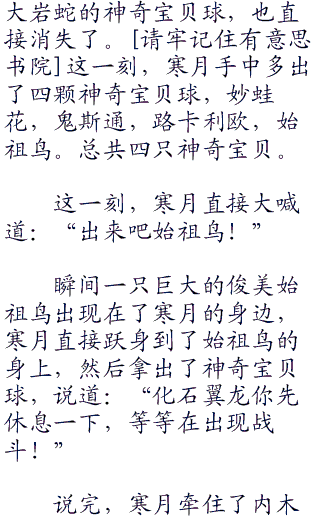 大岩蛇的神奇宝贝球，也直
接消失了。[请牢记住有意思
书院]这一刻，寒月手中多出
了四颗神奇宝贝球，妙蛙
花，鬼斯通，路卡利欧，始
祖鸟。总共四只神奇宝贝。
这一刻，寒月直接大喊
道：“出来吧始祖鸟！”
瞬间一只巨大的俊美始
祖鸟出现在了寒月的身边，
寒月直接跃身到了始祖鸟的
身上，然后拿出了神奇宝贝
球，说道：“化石翼龙你先
休息一下，等等在出现战
斗！”
说完，寒月牵住了内木